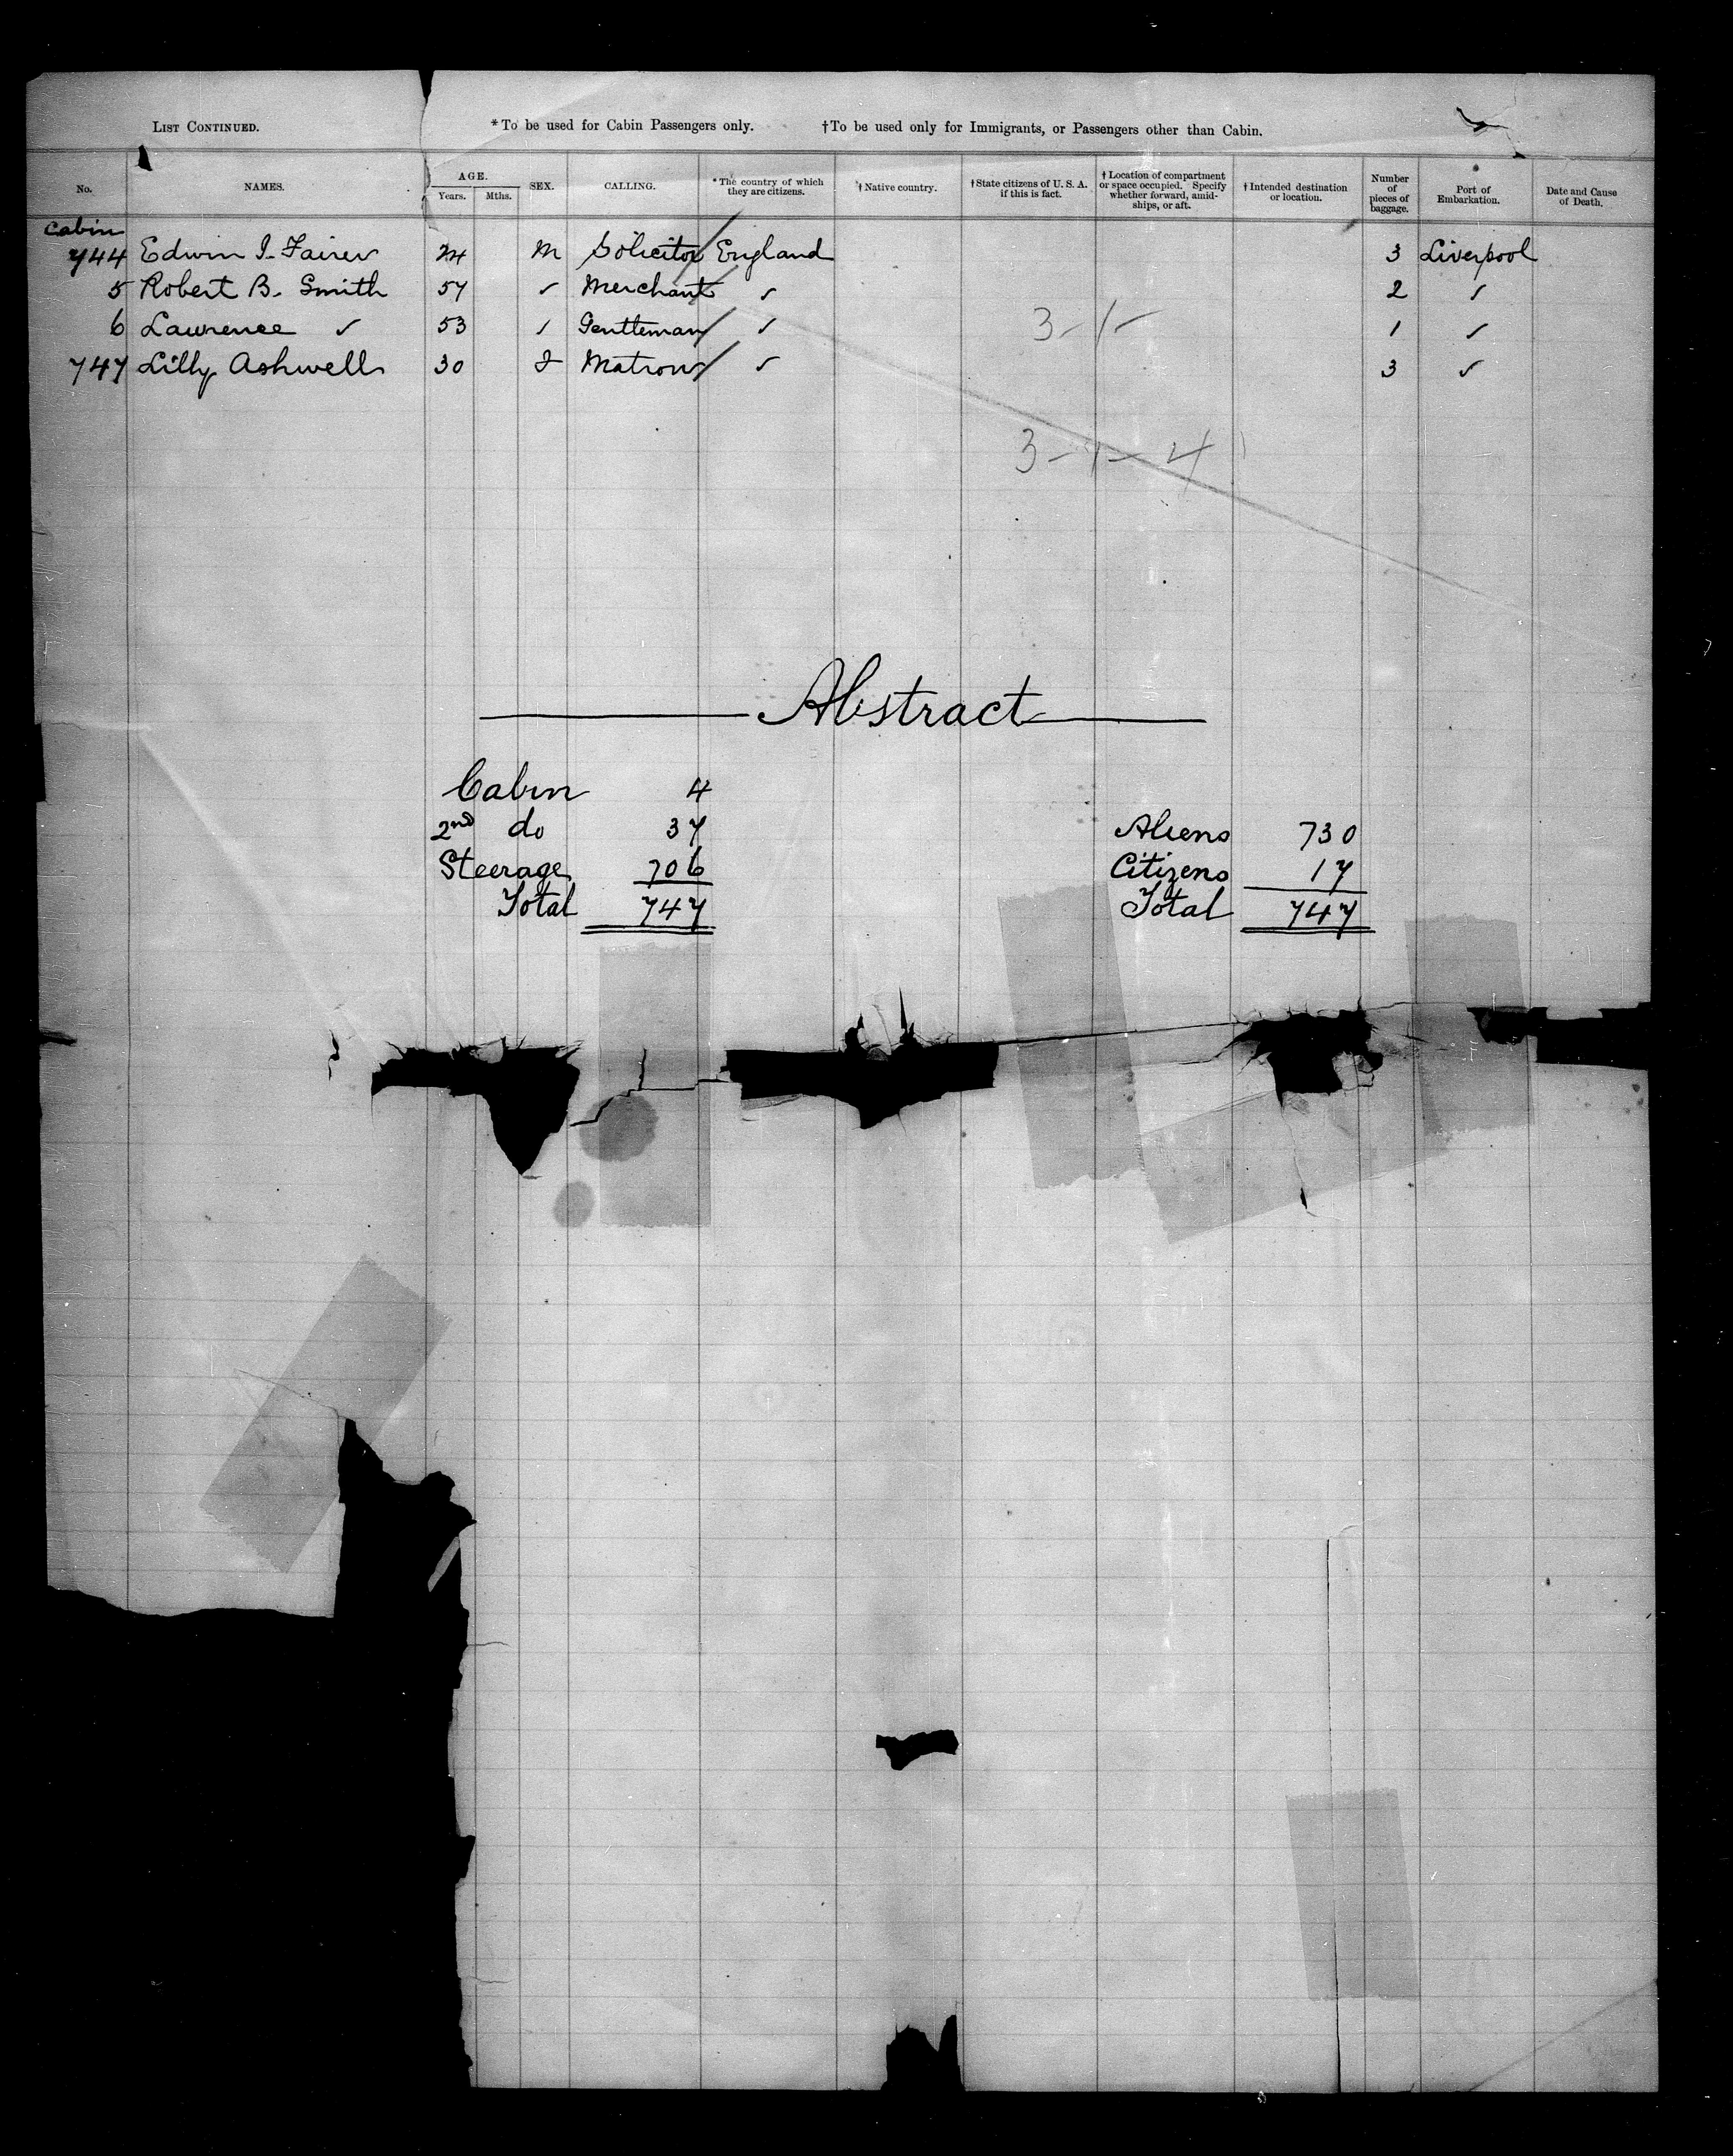 LIST CONTINUED. *To be used for Cabin Passengers only. †To be used only for Immigrants, or Passengers other than Cabin.
No. NAMES. AGE. Years. Mths. SEX. CALLING. *The country of which they are citizens. †Native country. †State citizens of U. S. A. if this is fact. †Location of compartment or space occupied. Specify whether forward, amidships, or aft. †Intended destination or location. Number of pieces of baggage. Port of Embarkation. Date and Cause of Death.
Cabin
744 Edwin I. 24 M Solicitor England 3 Liverpool
5 Robert B. Smith 57 ✓ Merchant ✓ 2 ✓
6 Lawrence ✓ 53 ✓ Gentleman ✓ 3-1- 1 ✓
747 Lilly Ashwell 30 F Matron ✓ 3 ✓
3-1-4
Abstract
Cabin 4
2nd do 37 Aliens 730
Steerage 706 Citizens 17
Total 747 Total 747